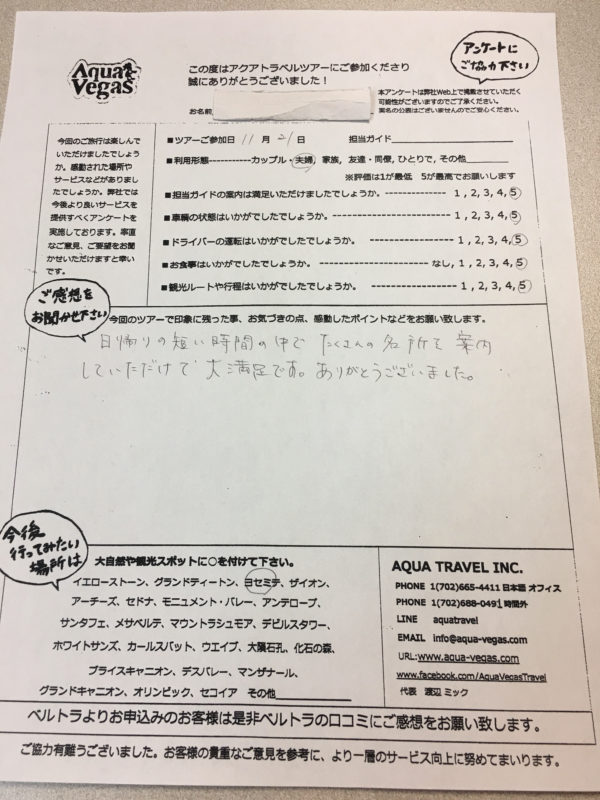 Aqua
Vegas
この度はアクアトラベルツアーにご参加くださり
誠にありがとうございました！
アンケートに
ご協力下さい
本アンケートは弊社Web上で掲載させていただく
可能性がございますのでご了承ください。
実名の公表はございませんのでご安心ください。
お名前
今回のご旅行は楽しんで
いただけましたでしょう
か。感動された場所や
サービスなどがありまし
たでしょうか。弊社では
今後より良いサービスを
提供すべくアンケートを
実施しております。率直
なご意見、ご要望をお聞
かせいただけますと幸い
です。
■ツアーご参加日 11 月 21 日 担当ガイド
■利用形態-----------カップル・夫婦, 家族, 友達・同僚, ひとりで, その他
※評価は1が最低 5が最高でお願いします
■担当ガイドの案内は満足いただけましたでしょうか。 ---------------- 1, 2, 3, 4, 5
■車輌の状態はいかがでしたでしょうか。------------------------ 1, 2, 3, 4, 5
■ドライバーの運転はいかがでしたでしょうか。 ----------------- 1, 2, 3, 4, 5
■お食事はいかがでしたでしょうか。 ------------------------ なし, 1, 2, 3, 4, 5
■観光ルートや行程はいかがでしたでしょうか。 ---------------- 1, 2, 3, 4, 5
ご感想を
お聞かせ下さい
今回のツアーで印象に残った事、お気づきの点、感動したポイントなどをお願い致します。
日帰りの短い時間の中で たくさんの名所を案内
していただけて 大満足です。ありがとうございました。
今後
行ってみたい
場所は
大自然や観光スポットに○を付けて下さい。
イエローストーン、グランドティートン、ヨセミテ、ザイオン、
アーチーズ、セドナ、モニュメント・バレー、アンテロープ、
サンタフェ、メサベルテ、マウントラシュモア、デビルスタワー、
ホワイトサンズ、カールスバット、ウエイブ、大隕石孔、化石の森、
ブライスキャニオン、デスバレー、マンザナール、
グランドキャニオン、オリンピック、セコイア その他
AQUA TRAVEL INC.
PHONE 1(702)665-4411 日本語 オフィス
PHONE 1(702)688-0491 時間外
LINE aquatravel
EMAIL info@aqua-vegas.com
URL:www.aqua-vegas.com
www.facebook.com/AquaVegasTravel
代表 渡辺 ミック
ベルトラよりお申込みのお客様は是非ベルトラの口コミにご感想をお願い致します。
ご協力有難うございました。お客様の貴重なご意見を参考に、より一層のサービス向上に努めてまいります。